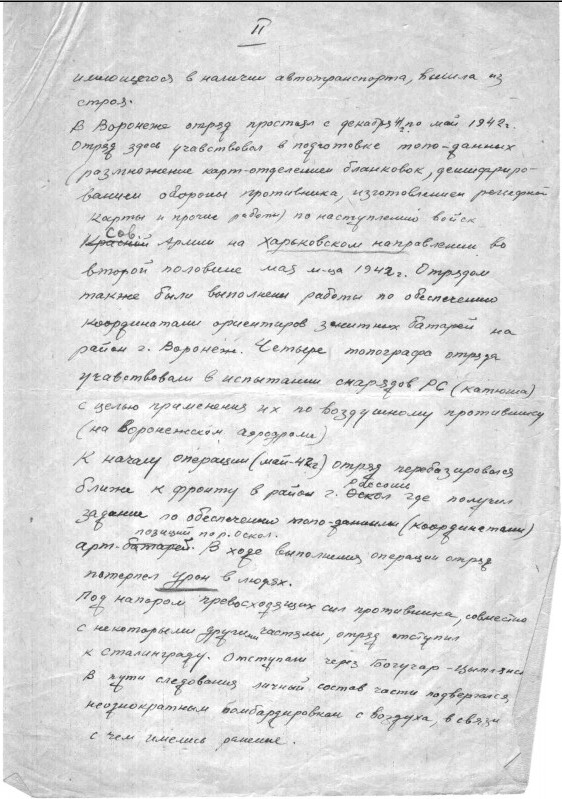 II
имеющегося в наличии автотранспорта, вышла из
строя.
В Воронеже отряд простоял с декабря 41г. по май 1942г.
Отряд здесь учавствовал в подготовке топо-данных
(размножение карт-отделением бланковок, дешифриро-
ванием обороны противника, изготовлением рельефной
карты и прочие работы) по наступлению войск
Сов.
Красной Армии на Харьковском направлении во
второй половине мая м-ца 1942г. Отрядом
также были выполнены работы по обеспечению
координатами ориентиров зенитных батарей на
район г. Воронеж. Четыре топографа отряда
учавствовали в испытании снарядов РС (катюша)
с целью применения их по воздушному противнику
(на Воронежском аэродроме)
К началу операции (май-42г) отряд перебазировался
ближе к фронту в район г. Оскол где получил
задание по обеспечению топо-данными (координатами)
позиций по р. Оскол.
арт-батарей. В ходе выполнения операции отряд
потерпел урон в людях.
Под напором превосходящих сил противника, совместно
с некоторыми другими частями, отряд отступил
к Сталинграду. Отступали через Богучар-
В пути следования личный состав части подвергался
неоднократным бомбардировкам с воздуха, в связи
с чем имелись раненые.